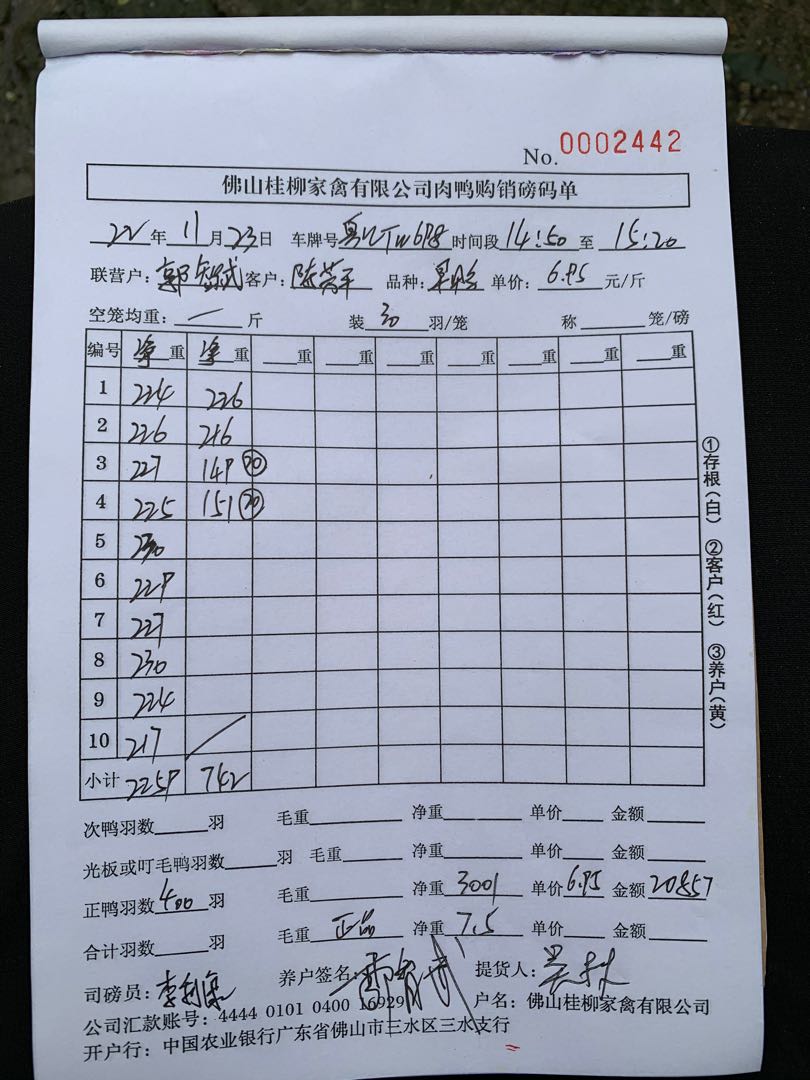 No. 0002442
佛山桂柳家禽有限公司肉鸭购销磅码单
22 年 11 月 23 日 车牌号 粤 时间段 14:50 至 15:20
联营户: 郭 客户: 陈 品种: 单价: 6.95 元/斤
空笼均重: 一 斤 装 30 羽/笼 称 笼/磅
编号 净重 净重 重 重 重 重 重 重 重
1 224 226
2 226 216
3 227 149 ⑳
4 225 151 ⑳
5 230
6 229
7 227
8 230
9 224
10 217
小计 2259 742
次鸭羽数 羽 毛重 净重 单价 金额
光板或叮毛鸭羽数 羽 毛重 净重 单价 金额
正鸭羽数 400 羽 毛重 净重 3001 单价 6.95 金额 20857
合计羽数 羽 毛重 正品 净重 7.5 单价 金额
司磅员: 李 养户签名: 郭 提货人:
公司汇款账号: 4444 0101 0400 16929 户名: 佛山桂柳家禽有限公司
开户行: 中国农业银行广东省佛山市三水区三水支行
①存根(白) ②客户(红) ③养户(黄)